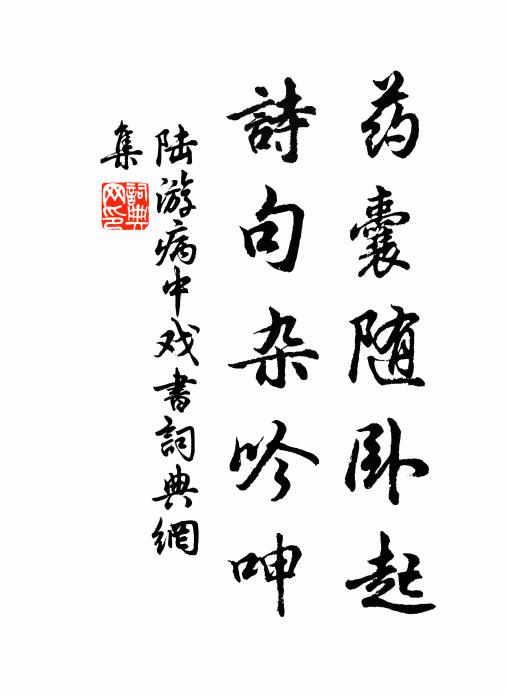 药囊随卧起
詩句杂吟呻
陆游病中戏書詞典網
集
詞典网印